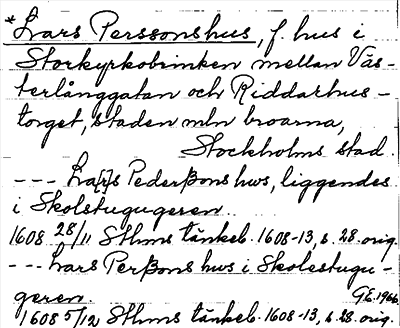 *Lars Perssonshus, f. hus i
Storkyrkobrinken mellan Väs-
terlånggatan och Riddarhus-
torget, staden mln broarna,
Stockholms stad.
--- La[r]s Pederßons hws, liggendes
i Skolstugugeren.
1608 28/11 Sthms tänkeb. 1608-13, s. 28. orig.
--- Lars Perßons hws i Skolestugu-
geren.
G.E. 1966
1608 5/12 Sthms tänkeb. 1608-13, s. 28. orig.